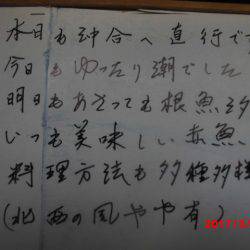 本日も沖合へ直行です
今日もゆったり潮でした
明日もあさっても根魚
いつも美味しい赤魚
料理方法も多種多様
(北西の風やや有)
2017